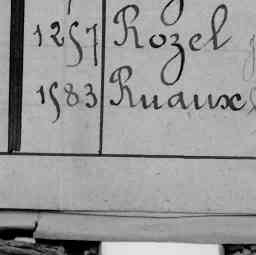 1257 Rozel
1583 Ruaux